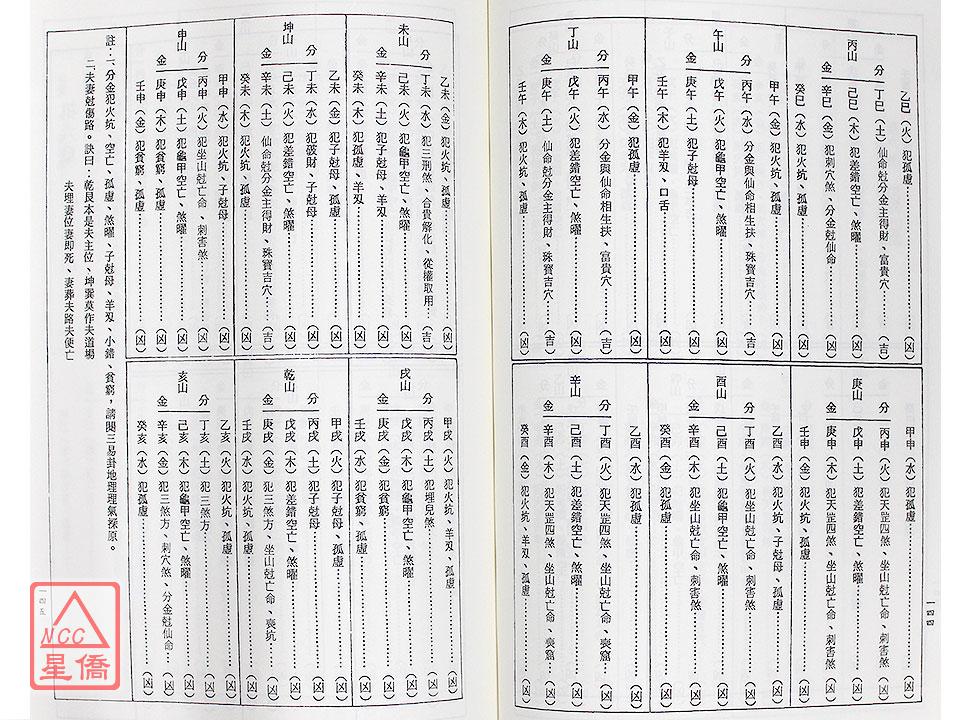 丙山
分金
乙巳（火）犯孤虛（凶）
丁巳（土）仙命尅分金主得財、富貴穴（吉）
己巳（木）犯差錯空亡、煞曜（凶）
辛巳（金）犯刺穴煞、分金尅仙命（凶）
癸巳（水）犯火坑、孤虛（凶）
午山
分金
甲午（金）犯火坑、孤虛（凶）
丙午（水）分金與仙命相生扶、珠寶吉穴（吉）
戊午（火）犯龜甲空亡、煞曜（凶）
庚午（土）犯子尅母（凶）
壬午（木）犯羊刄、口舌（凶）
丁山
分金
甲午（金）犯孤虛（凶）
丙午（水）分金與仙命相生扶、富貴穴（吉）
戊午（火）犯差錯空亡、煞曜（凶）
庚午（土）仙命尅分金主得財、珠寶吉穴（吉）
壬午（木）犯火坑、孤虛（凶）
庚山
分金
甲申（水）犯孤虛（凶）
丙申（火）犯天罡四煞、坐山尅亡命、刺害煞（凶）
戊申（土）犯差錯空亡、煞曜（凶）
庚申（木）犯天罡四煞、坐山尅亡命、刺害煞（凶）
壬申（金）犯火坑、孤虛（凶）
酉山
分金
乙酉（水）犯火坑、子尅母、孤虛（凶）
丁酉（火）犯坐山尅亡命、刺害煞（凶）
己酉（土）犯龜甲空亡、煞曜（凶）
辛酉（木）犯坐山尅亡命、刺害煞（凶）
癸酉（金）犯孤虛（凶）
辛山
分金
乙酉（水）犯孤虛（凶）
丁酉（火）犯天罡四煞、坐山尅亡命、喪窟（凶）
己酉（土）犯差錯空亡、煞曜（凶）
辛酉（木）犯天罡四煞、坐山尅亡命、喪窟（凶）
癸酉（金）犯火坑、羊刄、孤虛（凶）
一四四
未山
分金
乙未（金）犯火坑、孤虛（凶）
丁未（水）犯三刑煞、合貴解化、從權取用（吉）
己未（火）犯龜甲空亡、煞曜（凶）
辛未（土）犯子尅母、羊刄（凶）
癸未（木）犯孤虛、羊刄（凶）
坤山
分金
乙未（金）犯子尅母、孤虛（凶）
丁未（水）犯破財、子尅母（凶）
己未（火）犯差錯空亡、煞曜（凶）
辛未（土）仙命尅分金主得財、珠寶吉穴（吉）
癸未（木）犯火坑、孤虛（凶）
申山
分金
甲申（水）犯火坑、子尅母（凶）
丙申（火）犯坐山尅亡命、刺害煞（凶）
戊申（土）犯龜甲空亡、煞曜（凶）
庚申（木）犯貧窮、孤虛（凶）
壬申（金）犯貧窮、孤虛（凶）
戌山
分金
甲戌（火）犯火坑、羊刄、孤虛（凶）
丙戌（土）犯埋兒煞（凶）
戊戌（木）犯龜甲空亡、煞曜（凶）
庚戌（金）犯貧窮（凶）
壬戌（水）犯貧窮、孤虛（凶）
乾山
分金
甲戌（火）犯子尅母、孤虛（凶）
丙戌（土）犯子尅母（凶）
戊戌（木）犯差錯空亡、煞曜（凶）
庚戌（金）犯三煞方、坐山尅亡命、喪坑（凶）
壬戌（水）犯火坑、孤虛（凶）
亥山
分金
乙亥（火）犯火坑、孤虛（凶）
丁亥（土）犯三煞方（凶）
己亥（木）犯龜甲空亡、煞曜（凶）
辛亥（金）犯三煞方、刺穴煞、分金尅仙命（凶）
癸亥（水）犯孤虛（凶）
註：一、分金犯火坑、空亡、孤虛、煞曜、子尅母、羊刄、小錯、貧窮，請閱三易卦地理理氣探原。
二、夫妻尅傷路。訣曰：乾艮本是夫主位、坤巽莫作夫道場
夫埋妻位妻即死、妻葬夫路夫便亡
一四五
NCC
星僑